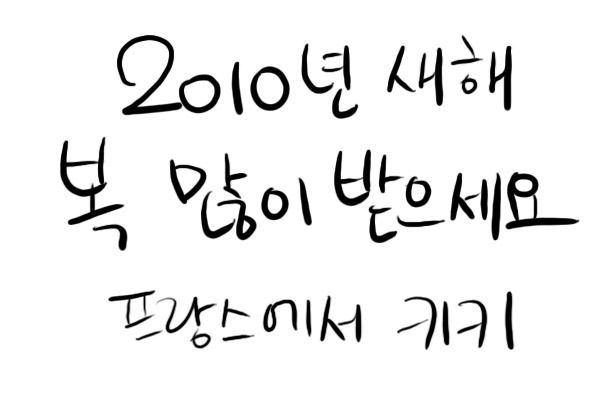 2010년 새해
복 많이 받으세요
프랑스에서 키키